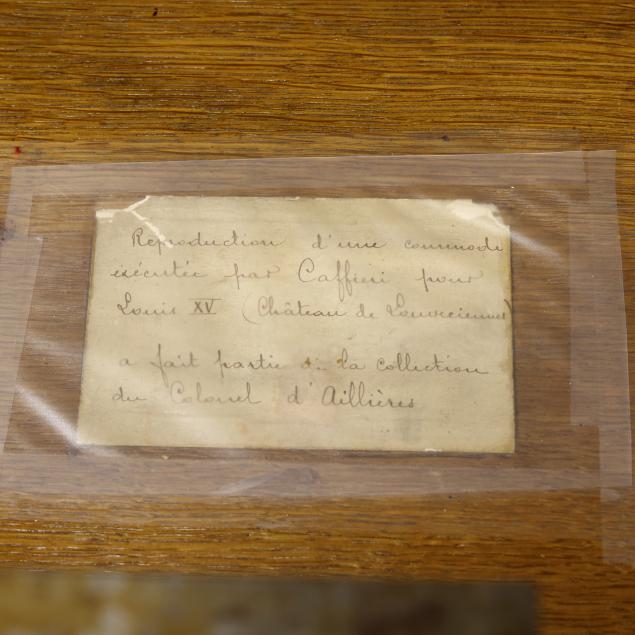 Reproduction d'une commode
exécutée par Caffieri pour
Louis XV (Château de Louveciennes)
a fait partie de la collection
du Colonel d'Aillières